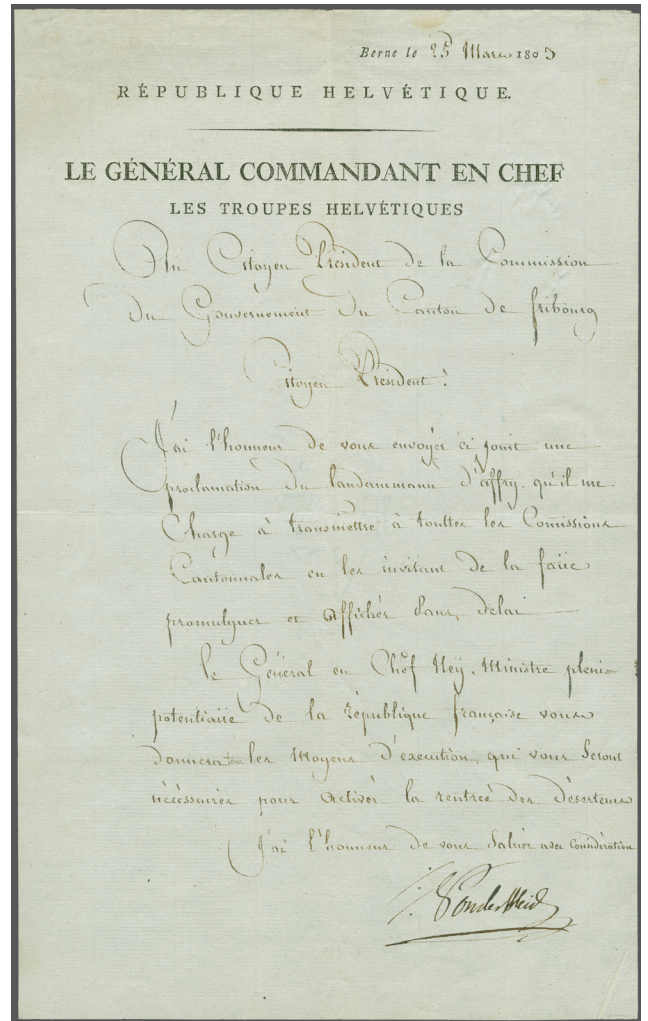 Berne le 25 Mars 1803
RÉPUBLIQUE HELVÉTIQUE.
LE GÉNÉRAL COMMANDANT EN CHEF
LES TROUPES HELVÉTIQUES
Au Citoyen Président de la Commission
Du Gouvernement Du Canton de fribourg
Citoyen Président!
J'ai l'honneur de vous envoyer ci joint une
proclamation Du landammann d'affry qu'il me
Charge à transmettre à touttes les Comissions
Cantonnales en les invitant de la faire
promulguer et afficher Sans delai
le Général en Chef Ney, Ministre pleni-
potentiaire de la République française vous
donnera tous les moyens d'execution, qui vous Seront
nécéssaires pour activer la rentreé des déserteurs
J'ai l'honneur de vous Saluer avec Considération
VonderWeid